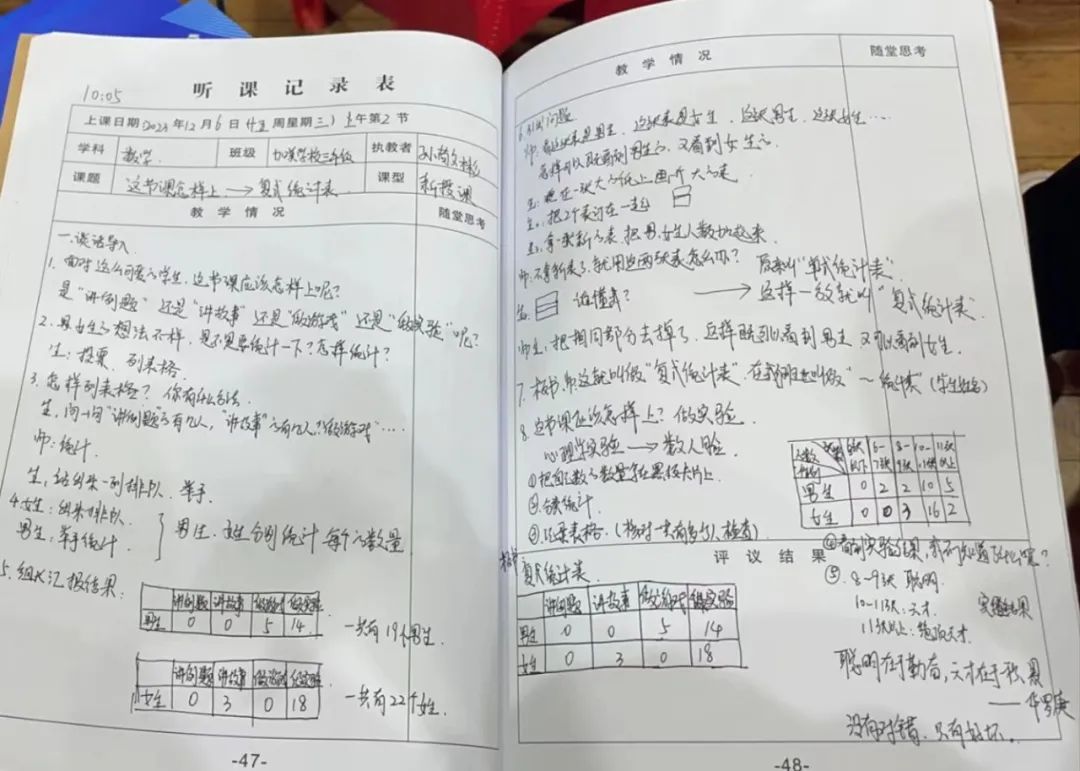 听课记录表
10:05
上课日期 2023年12月6日 周星期三 上午第2节
学科 数学 班级 学校三年级 执教者
课题 这节课怎样上 → 复式统计表 课型 新授课
教学情况 随堂思考
一.谈话导入
1. 面对这么可爱的学生,这节课应该怎样上呢?
是"讲例题"还是"讲故事"还是"做游戏"还是"做实验"呢?
2. 男女生的想法不一样,是不是要统计一下?怎样统计?
生:投票、列表格.
3. 怎样列表格?你有什么方法.
生,问一句"讲例题"的有几人,"讲故事"的有几人?"做游戏"……
师:统计.
生,站出来一列排队、举手.
4.女生:出来排队.
男生,举手统计.
男生、女生分别统计每个的数量
5、组长汇报结果:
讲例题 讲故事 做游戏 做实验
男生 0 0 5 14
一共有19个男生.
讲例题 讲故事 做游戏 做实验
女生 0 3 0 18
一共有22个女生.
-47-
教学情况 随堂思考
6. 问题
师:这张表是男生,这张表是女生,这张男生,这张女生……
怎样可以既看到男生的,又看到女生的
生:画在一张大的纸上,画个大的表
生:把2个表订在一起
生:拿一张新的表,把男、女生人数加起来.
师:不拿新表了,就用这两张表怎么办? 原来叫"单式统计表"
生: 谁懂我? → 这样一放就叫"复式统计表"
师生:把相同部分去掉了,这样既可以看到男生,又可以看到女生.
7. 板书.师:这就叫做"复式统计表"
8. 这节课应该怎样上?做实验
心理学实验 → 数人脸
①把自己数的数量写在黑板卡片上
②分类统计.
③汇集表格.(核对一共有多少人,检查)
人数 张数 性别 6张以下 6-7张 8-9张 10-11张 11张以上
男生 0 2 2 10 5
女生 0 0 3 16 2
评议结果
④看到实验结果,
⑤ 8-9张 聪明
10-11张:天才
11张以上:绝顶天才
实验结果
板书 复式统计表
讲例题 讲故事 做游戏 做实验
男生 0 0 5 14
女生 0 3 0 18
聪明在于勤奋,天才在于积累
——华罗庚
没有对错,只有好坏。
-48-